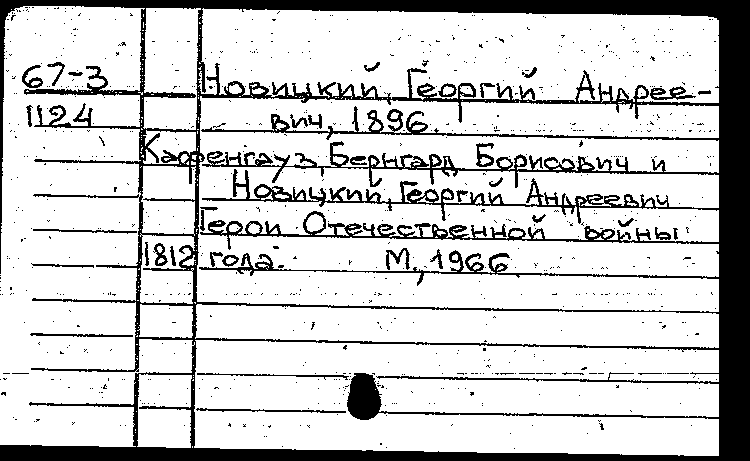 67-3 Новицкий, Георгий Андрее-
1124 вич, 1896.
Кафенгауз, Бернгард Борисович и
Новицкий, Георгий Андреевич
Герои Отечественной войны
1812 года. М., 1966